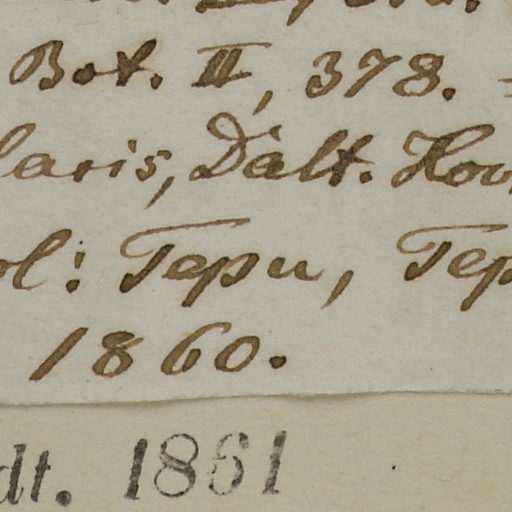 Bot. II, 378.
laris, Dalt. Hov
ol: Tapu, Tep
1860.
dt. 1861